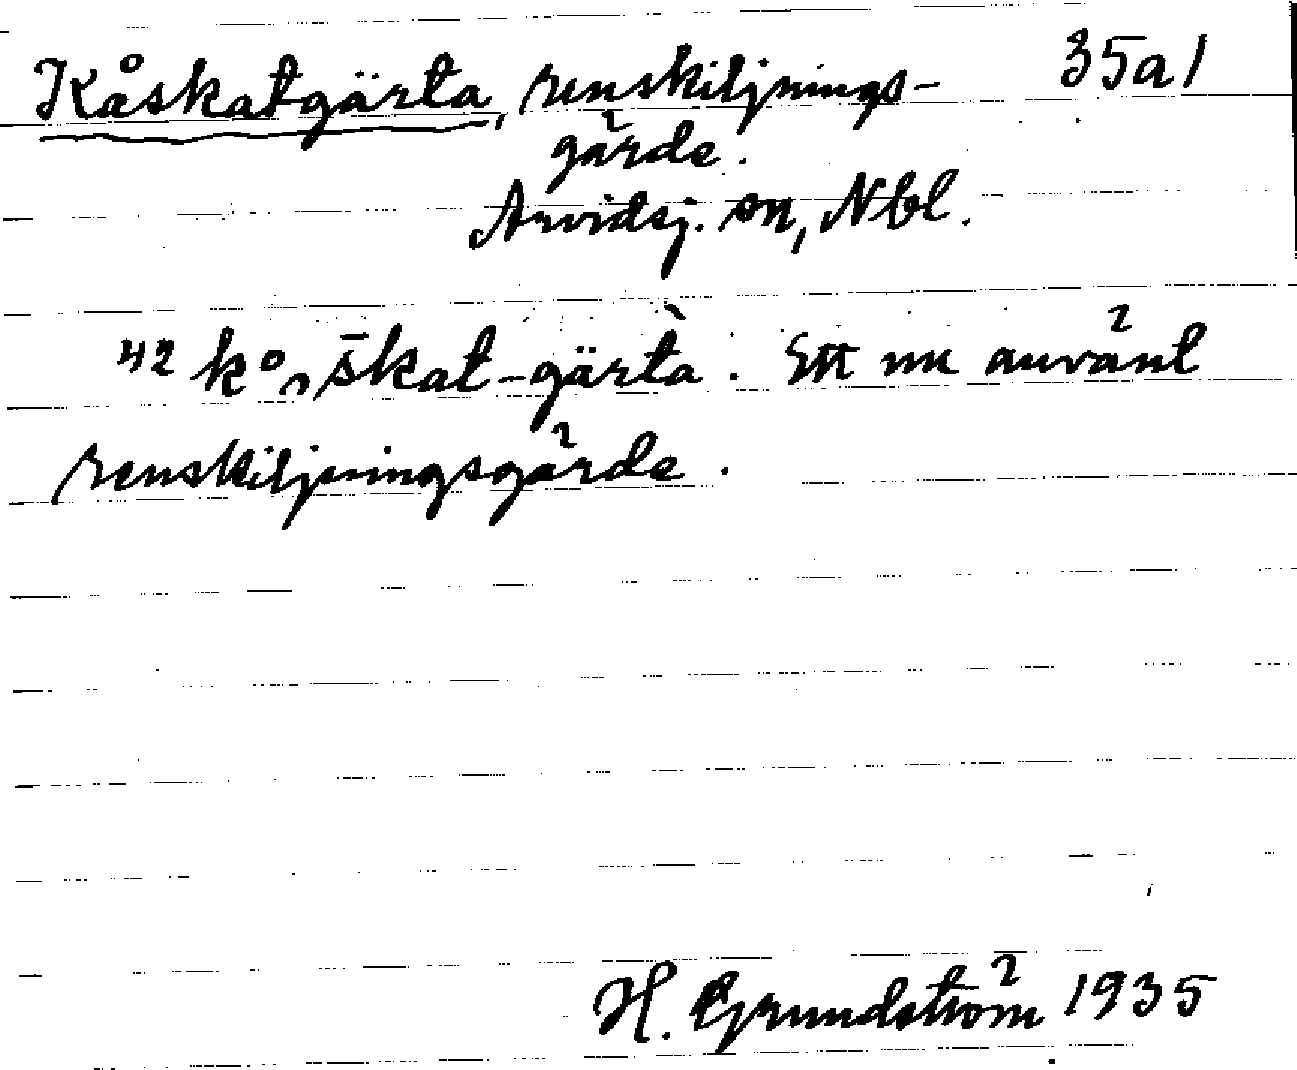 Kåskatgärta, renskiljnings- 35a1
gärde.
Arvidsj. sn, Nbl.
42 kо̨s̄kat-gärtà. Ett nu använt
renskiljningsgärde.
H. Grundström 1935